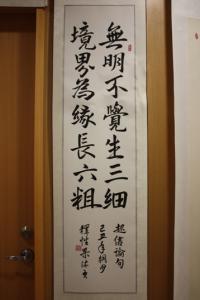 無明不覺生三細
境界為緣長六粗
起信論句
己丑年
釋性